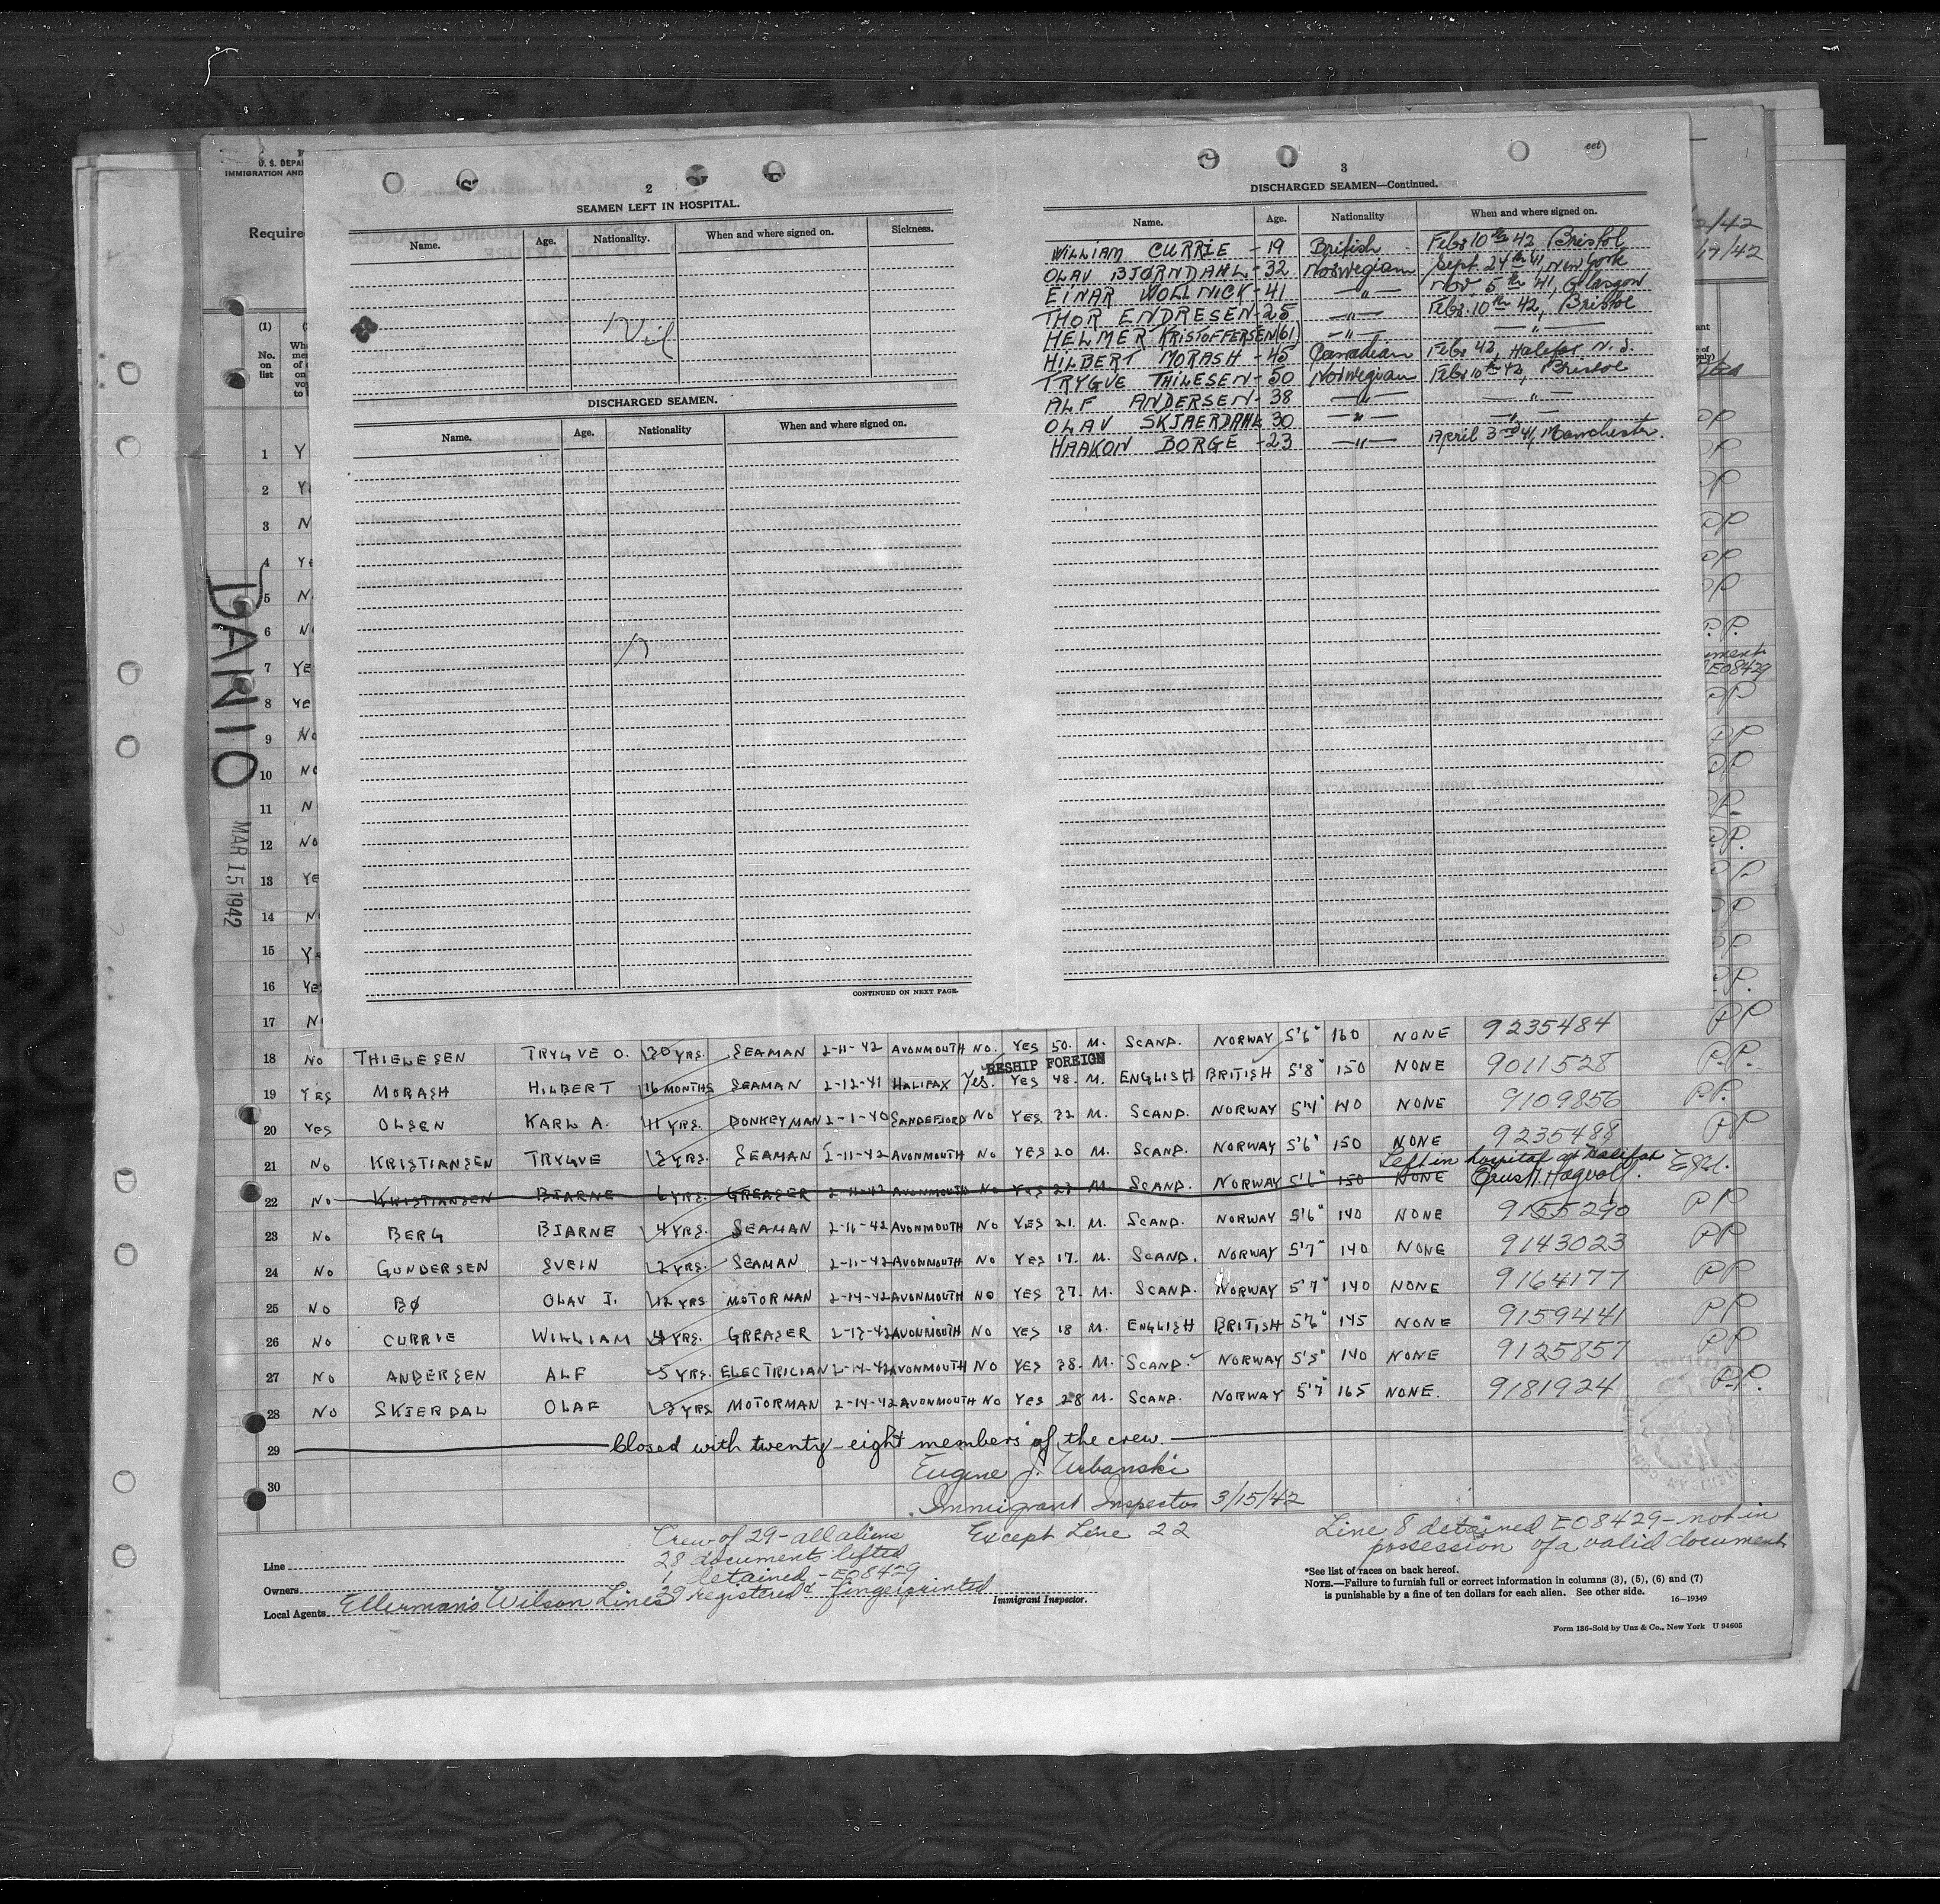 U. S. DEPA
IMMIGRATION AND
Require
(1)
No.
on
list
DANIO
MAR 15 1942
2
SEAMEN LEFT IN HOSPITAL.
Name. Age. Nationality. When and where signed on. Sickness.
Nil
DISCHARGED SEAMEN.
Name. Age. Nationality When and where signed on.
CONTINUED ON NEXT PAGE.
3
DISCHARGED SEAMEN—Continued.
Name. Age. Nationality When and where signed on.
WILLIAM CURRIE - 19 British Feb. 10th 42, Bristol
OLAV BJØRNDAHL - 32 Norwegian Sept. 24th 41, New York
EINAR WOLLNICK - 41 —"— Nov. 5th 41, Glasgow
THOR ENDRESEN - 25 —"— Feb. 10th 42, Bristol
HELMER KRISTOFFERSEN (61) —"— —"—
HILBERT MORASH - 45 Canadian Feb. 42, Halifax N.S.
TRYGVE THILESEN - 50 Norwegian Feb 10th 42, Bristol
ALF ANDERSEN - 38 —"— —"—
OLAV SKJAERDAHL 30 —"— —"—
HAAKON BORGE - 23 —"— April 3rd 41, Manchester.
2/42
17/42
1 Y
2 Ye
3 N
4 Ye
5 N
6 No
7 YE
8 YE
E08429
9 No
10 No
11 N
12 No
13 Ye
14 N
15 Ye
16 Yes
17 N
18 No THIELESEN TRYGVE O. 30 YRS. SEAMAN 2-11-42 AVONMOUTH NO. YES 50. M. SCAND. NORWAY 5'6" 160 NONE 9235484 PP
RESHIP FOREIGN
19 YES MORASH HILBERT 16 MONTHS SEAMAN 2-12-41 HALIFAX Yes. YES 48. M. ENGLISH BRITISH 5'8" 150 NONE 9011528 P.P.
20 YES OLSEN KARL A. 41 YRS. DONKEYMAN 2-1-40 SANDEFJORD NO YES 32 M. SCAND. NORWAY 5'4" 140 NONE 9109856 PP.
21 NO KRISTIANSEN TRYGVE 3 YRS. SEAMAN 2-11-42 AVONMOUTH NO YES 20 M. SCAND. NORWAY 5'6" 150 NONE 9235488 PP
Left in hospital at Halifax
22 NO KRISTIANSEN BJARNE 6 YRS. GREASER 2-11-42 AVONMOUTH NO YES 27 M. SCAND. NORWAY 5'6" 150 NONE
23 NO BERG BJARNE 4 YRS. SEAMAN 2-11-42 AVONMOUTH NO YES 21. M. SCAND. NORWAY 5'6" 140 NONE 9155290 PP
24 NO GUNDERSEN SVEIN 2 YRS. SEAMAN 2-11-42 AVONMOUTH NO YES 17. M. SCAND. NORWAY 5'7" 140 NONE 9143023 PP
25 NO BØ OLAV I. 12 YRS. MOTORMAN 2-14-42 AVONMOUTH NO YES 37. M. SCAND. NORWAY 5'7" 140 NONE 9164177 PP
26 NO CURRIE WILLIAM 4 YRS. GREASER 2-13-42 AVONMOUTH NO YES 18 M. ENGLISH BRITISH 5'6" 145 NONE 9159441 PP
27 NO ANDERSEN ALF 5 YRS. ELECTRICIAN 2-14-42 AVONMOUTH NO YES 38. M. SCAND. NORWAY 5'5" 140 NONE 9125857 PP
28 NO SKJERDAL OLAF 9 YRS MOTORMAN 2-14-42 AVONMOUTH NO YES 28 M. SCAND. NORWAY 5'7" 165 NONE. 9181924 P.P.
29 Closed with twenty-eight members of the crew.
Eugene J. Urbanski
30 Immigrant Inspector 3/15/42
Crew of 29 - all aliens Except Line 22
28 documents lifted
1 detained - E08429
29 registered & fingerprinted
Line 8 detained E08429 - not in
possession of a valid document
Line
Owners
Local Agents Ellerman's Wilson Lines
Immigrant Inspector.
*See list of races on back hereof.
NOTE.—Failure to furnish full or correct information in columns (3), (5), (6) and (7)
is punishable by a fine of ten dollars for each alien. See other side.
16—19349
Form 136-Sold by Unz & Co., New York U 94605